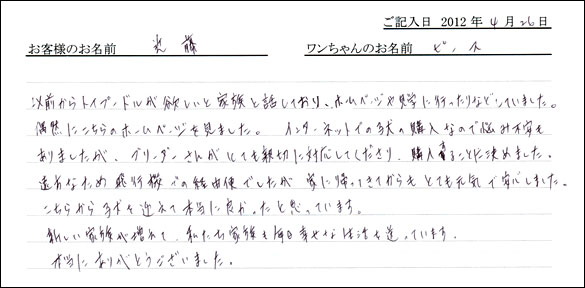 ご記入日 2012年4月26日
お客様のお名前 近藤 ワンちゃんのお名前
以前からトイプードルが欲しいと家族と話しており、ホームページや見学に行ったりなどしていました。
偶然にこちらのホームページを見ました。 インターネットでの子犬の購入なので悩み不安も
ありましたが、ブリーダーさんがとても親切に対応してくださり、購入することに決めました。
遠方なため飛行機での経由便でしたが 家に帰ってきてからも とても元気で安心しました。
こちらから子犬を迎えて本当に良かったと思っています。
新しい家族が増えて、私たち家族も毎日幸せな生活を送っています。
本当にありがとうございました。